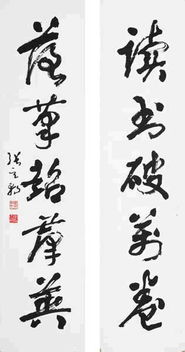 讀書破萬卷
落筆超羣英